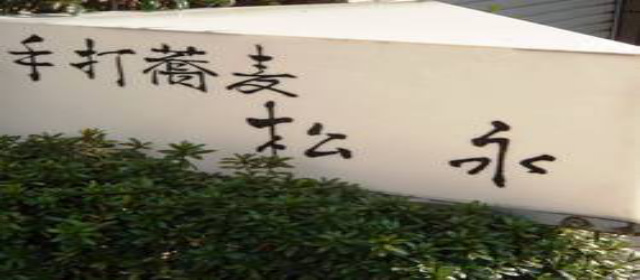 手打蕎麦
松永